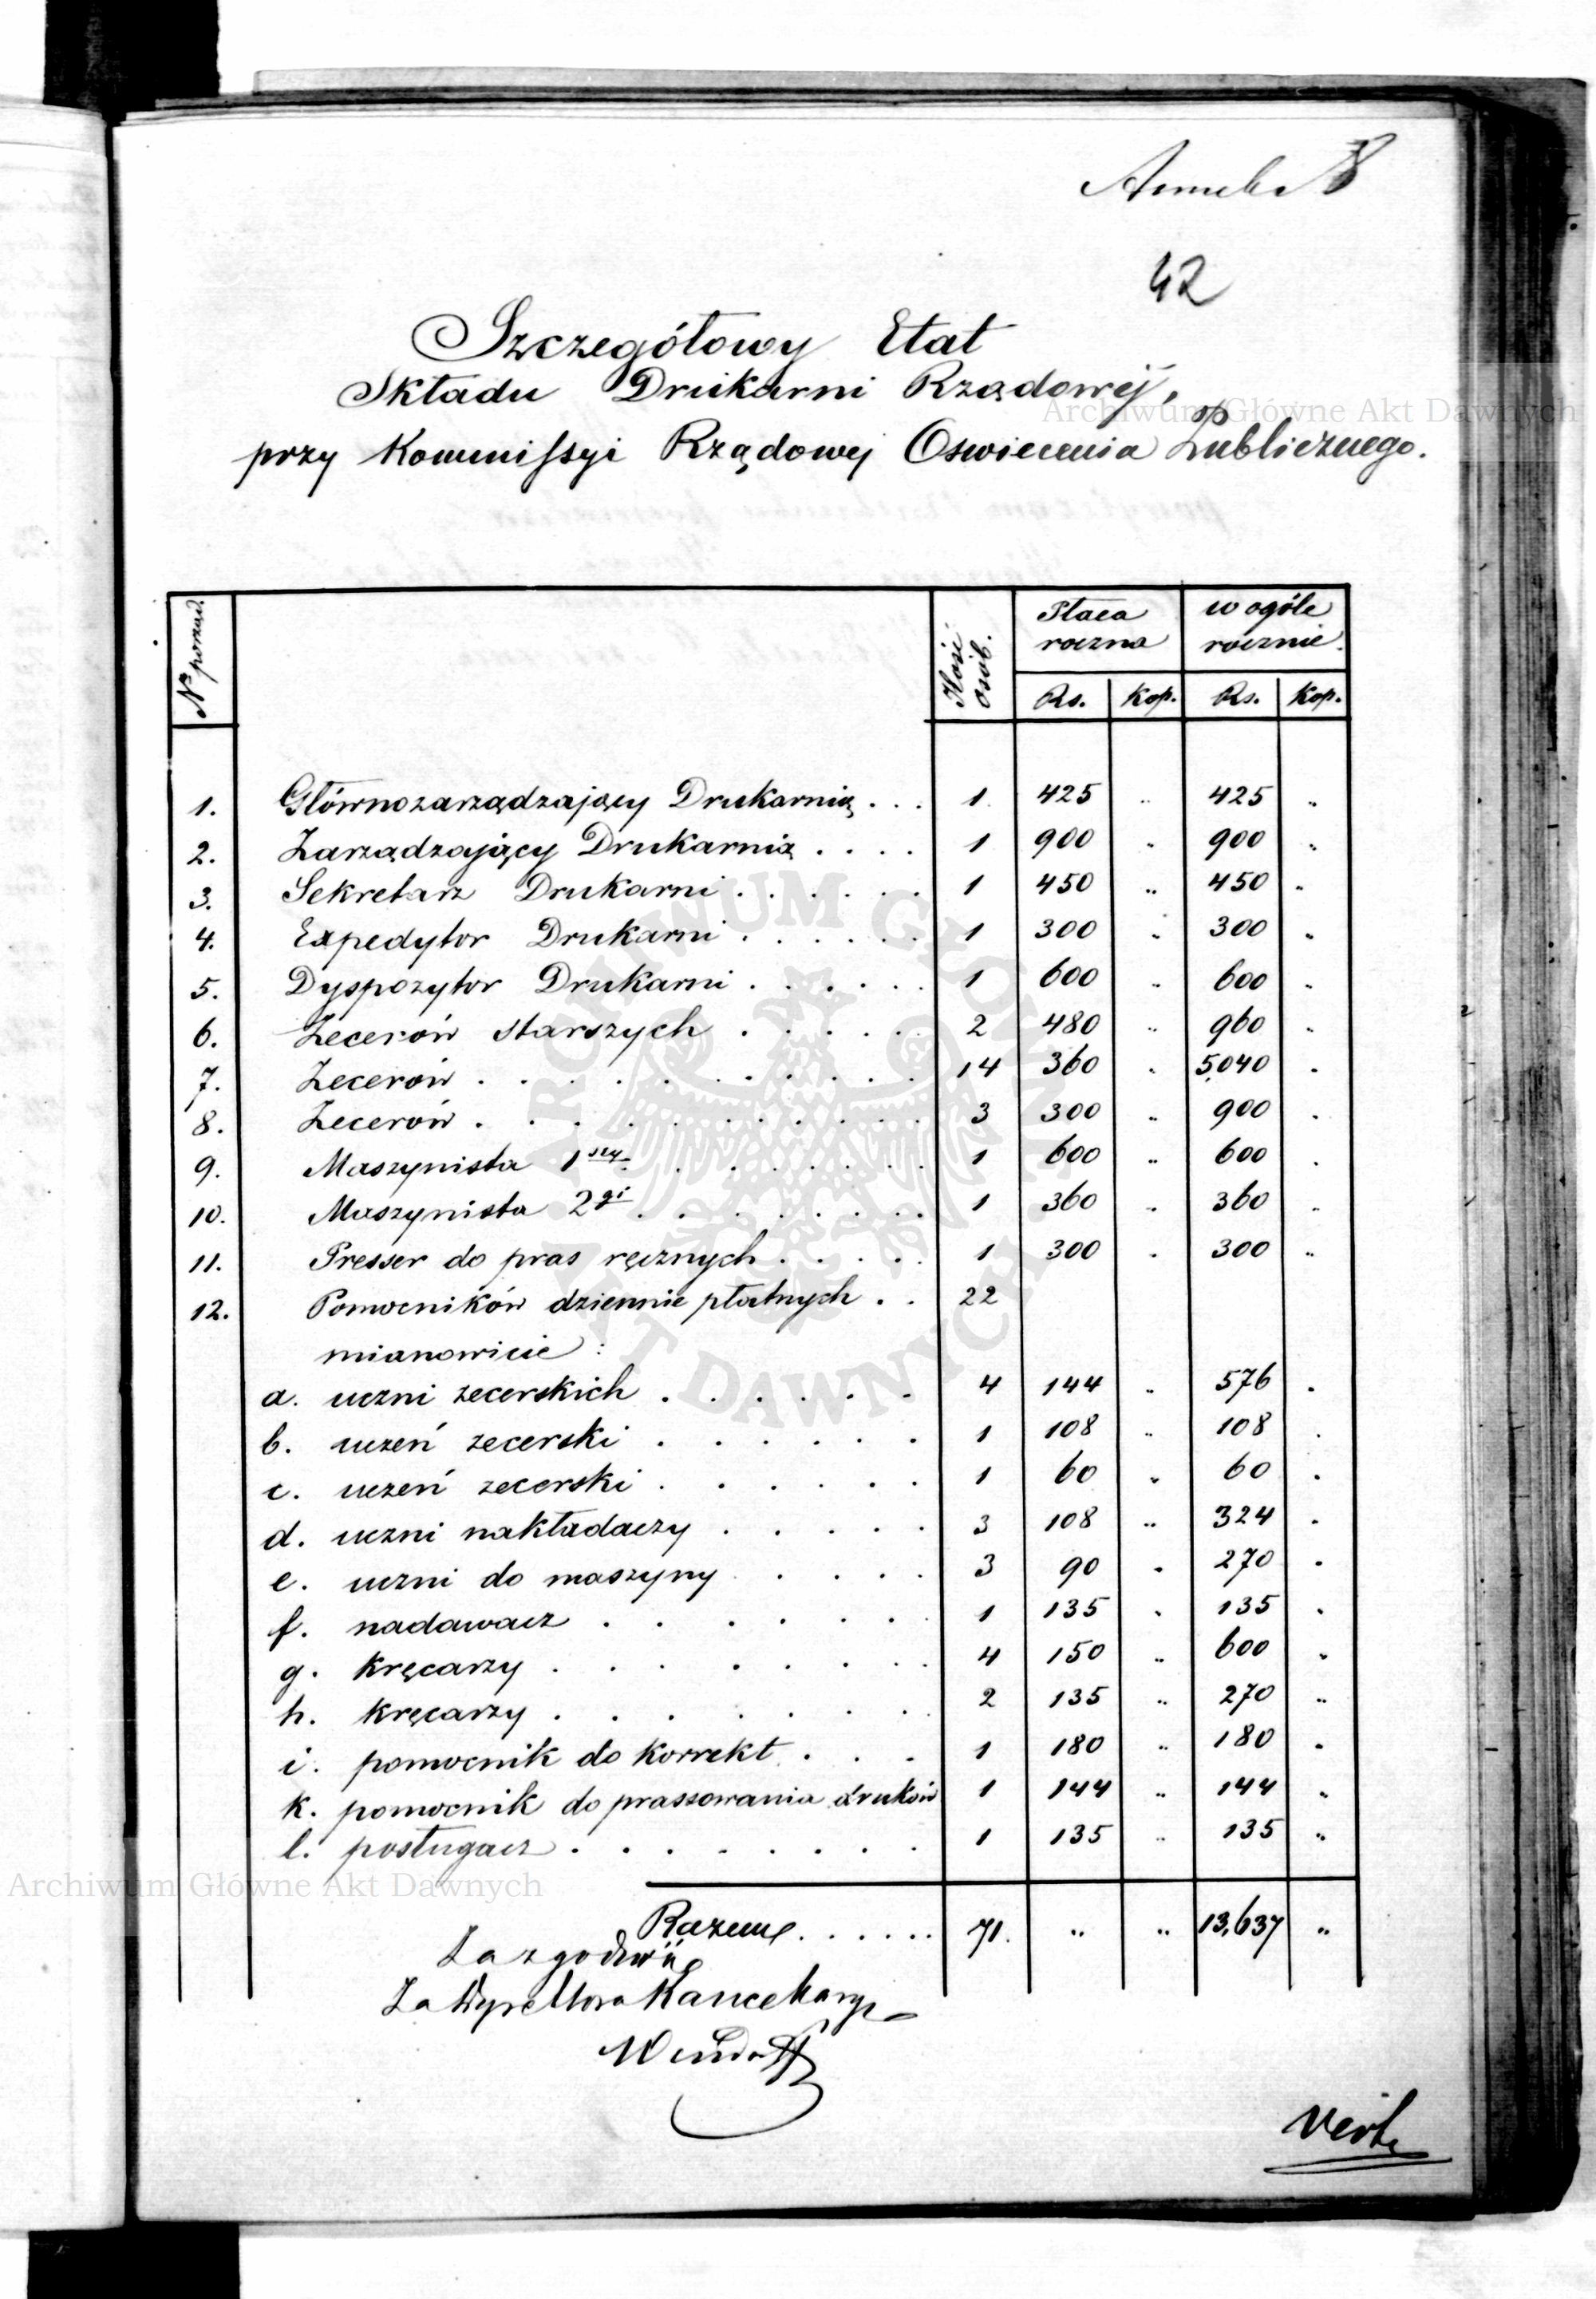 Anneks
42
Szczegółowy Etat
Składu Drukarni Rządowéj,
przy Kommissyi Rządowej Oswiecenia Publicznego.
№ porząd. Ilość osób. Płaca roczna w ogóle rocznie.
Rs. Kop. Rs. Kop.
1. Głównozarządzający Drukarnią . . . 1 425 „ 425 „
2. Zarządzający Drukarnią . . . . 1 900 „ 900 „
3. Sekretarz Drukarni . . . . . . 1 450 „ 450 „
4. Expedytor Drukarni . . . . . . 1 300 „ 300 „
5. Dyspozytor Drukarni . . . . . . 1 600 „ 600 „
6. Zecerów starszych . . . . . 2 480 „ 960 „
7. Zecerów . . . . . . . . . . 14 360 „ 5,040 „
8. Zecerów . . . . . . . . . . 3 300 „ 900 „
9. Maszynista 1szy . . . . . . . 1 600 „ 600 „
10. Maszynista 2gi . . . . . . . . 1 360 „ 360 „
11. Presser do pras ręcznych . . . . . 1 300 „ 300 „
12. Pomocników dziennie płatnych . . 22
mianowicie :
a. uczni zecerskich . . . . . . 4 144 „ 576 „
b. uczeń zecerski . . . . . . 1 108 „ 108 „
c. uczeń zecerski . . . . . . 1 60 „ 60 „
d. uczni nakładaczy . . . . . 3 108 „ 324 „
e. uczni do maszyny . . . . . 3 90 „ 270 „
f. nadawacz . . . . . . . 1 135 „ 135 „
g. kręcarzy . . . . . . . . 4 150 „ 600 „
h. kręcarzy . . . . . . . . 2 135 „ 270 „
i. pomocnik do korrekt . . . 1 180 „ 180 „
k. pomocnik do prassowania druków 1 144 „ 144 „
l. posługacz . . . . . . . . 1 135 „ 135 „
Razem . . . . . . 71. „ „ 13,637 „
Za zgodność
Za Dyrektora Kancellaryi
Verte
Archiwum Główne Akt Dawnych
Archiwum Główne Akt Dawnych
ARCHIWUM GŁÓWNE AKT DAWNYCH